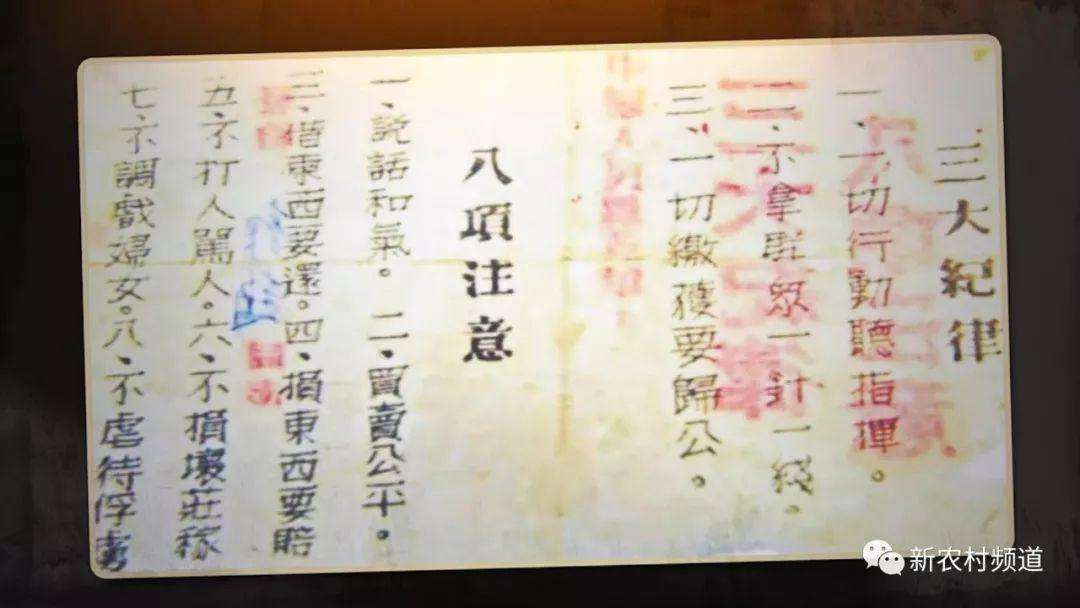 三大紀律
一、一切行動聽指揮。
二、不拿群眾一針一綫。
三、一切繳獲要歸公。
八項注意
一、說話和氣。二、買賣公平。
三、借東西要還。四、損東西要賠
五、不打人駡人。六、不損壞莊稼
七、不調戲婦女。八、不虐待俘虜
新农村频道